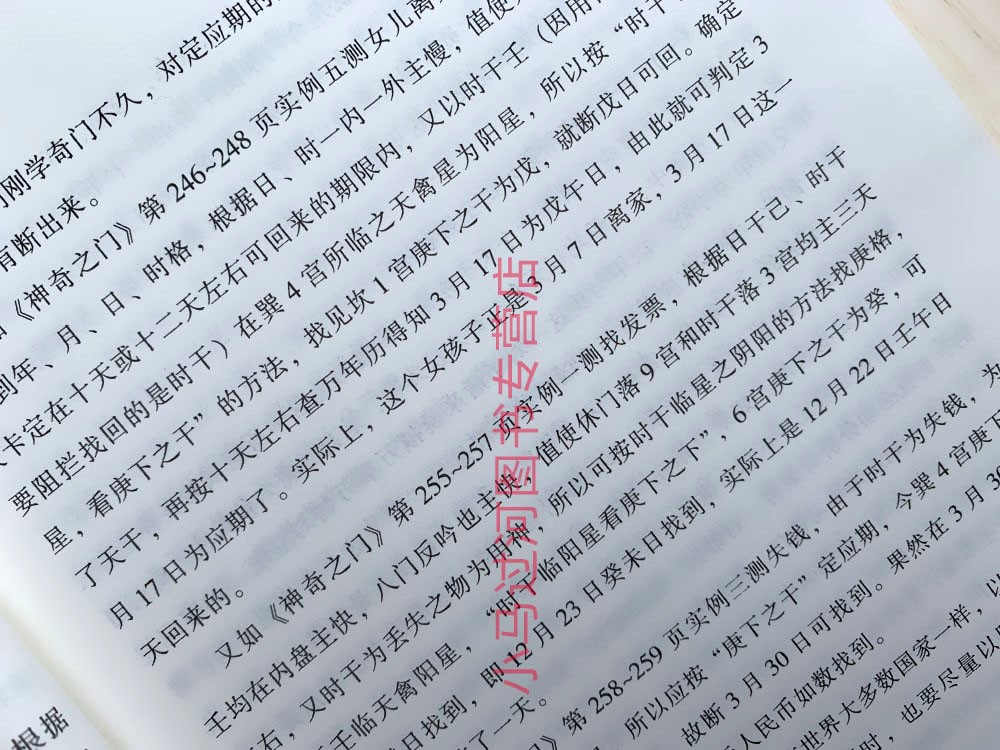 刚学奇门不久，对定应期的
有断出来。
《神奇之门》第 246~248 页实例五测女儿离
到年、月、日、时格，根据日、时一内一外主慢，值使
卡定在十天或十二天左右可回来的期限内，又以时干壬（因用
要阻拦找回的是时干）在巽 4 宫所临之天禽星为阳星，所以按“时干
星，看庚下之干”的方法，找见坎 1 宫庚下之干为戊，就断戊日可回。确定
了天干，再按十天左右查万年历得知 3 月 17 日为戊午日，由此就可判定 3
月 17 日为应期了。实际上，这个女孩子正是 3 月 7 日离家，3 月 17 日这一
天回来的。
又如《神奇之门》第 255~257 页实例一测找发票，根据日干己、时干
壬均在内盘主快，八门反吟也主快，值使休门落 9 宫和时干落 3 宫均主三天
右，又时干为丢失之物为用神，所以可按时干临星之阴阳的方法找庚格，
壬临天禽阳星，“时干临阳星看庚下之下”，6 宫庚下之干为癸，可
日找到，即 12 月 23 日癸未日找到，实际上是 12 月 22 日壬午日
了一天。
》第 258~259 页实例三测失钱，由于时干为失钱，为
所以应按“庚下之干”定应期，今巽 4 宫庚下
故断 3 月 30 日可找到。果然在 3 月 30
人民币如数找到。
世界大多数国家一样，以
时，也要尽量以
根据
小马过河图书专营店